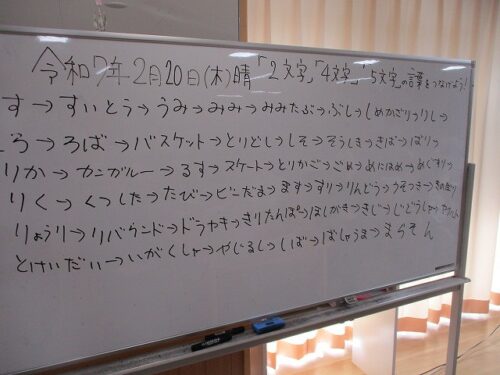 令和7年2月20日(木)晴「2文字」「4文字」「5文字」の言葉をつなげよう!
す→すいとう→うみ→みみ→みみたぶ→ぶし→しめかざり→りし→
ろ→ろば→バスケット→とりどし→しそ→そうしき→きば→ばり→
りか→カンガルー→るす→スケート→とりかご→ごめ→あにはめ→めぐすり→
りく→くつした→たび→ビーだま→ます→すり→りんどう→うそつき→
りょうり→リバウンド→ドラやき→きりたんぽ→ほしがき→きじ→じどうしゃ→
とけいだい→いがくしゃ→やじるし→しば→ばしゃうま→まらそん